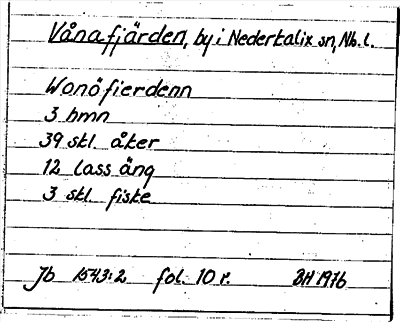 Vånafjärden, by i Nederkalix sn, Nb. l.
Wonöfierdenn
3 bmn
39 skl. åker
12 lass äng
3 skl. fiske
Jb 1543:2 fol. 10 r. BH 1976